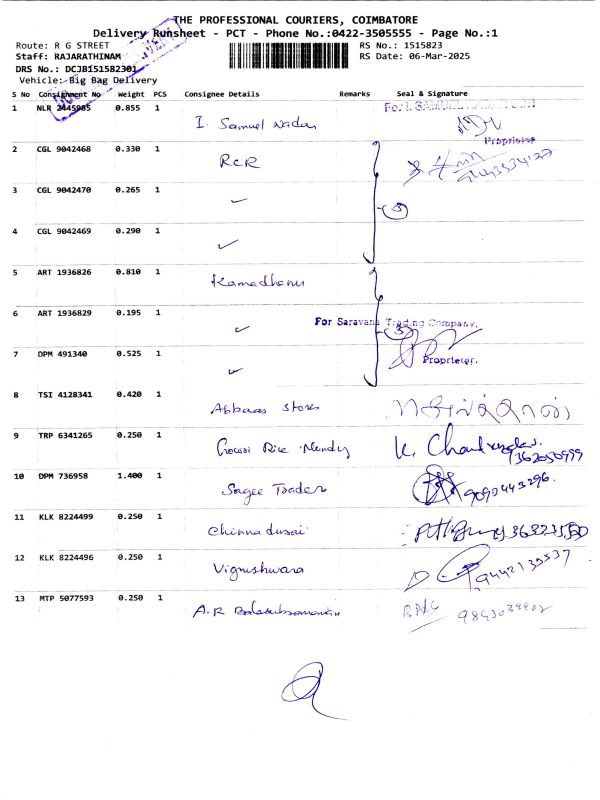 THE PROFESSIONAL COURIERS, COIMBATORE
Delivery Runsheet - PCT - Phone No.:0422-3505555 - Page No.:1
Route: R G STREET RS No.: 1515823
Staff: RAJARATHINAM RS Date: 06-Mar-2025
DRS No.: DCJB151582301
Vehicle: Big Bag Delivery
S No Consignment No Weight PCS Consignee Details Remarks Seal & Signature
1 NLR 2445985 0.855 1 I. Samuel Nadar
Proprietor
2 CGL 9042468 0.330 1 RCR
3 CGL 9042470 0.265 1
4 CGL 9042469 0.290 1
5 ART 1936826 0.810 1 Kamadhenu
6 ART 1936829 0.195 1 For Saravana Trading Company.
7 DPM 491340 0.525 1 Proprietor.
8 TSI 4128341 0.420 1 Abbaas Stores
9 TRP 6341265 0.250 1 Gowri Rice Mandy
10 DPM 736958 1.400 1 Sagee Traders
11 KLK 8224499 0.250 1 Chinnadurai
12 KLK 8224496 0.250 1 Vigneshwara 9442135537
13 MTP 5077593 0.250 1 A.R Balasubramaniam